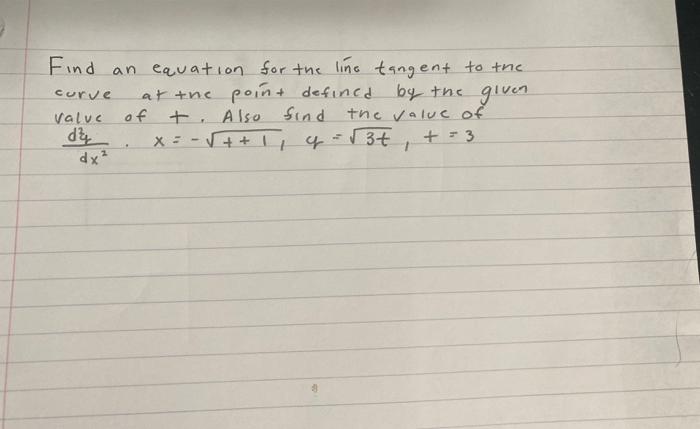 Find an equation for the line tangent to the
curve at the point defined by the given
value of t. Also find the value of
d²y/dx². x = -√t+1, y = √3t, t = 3